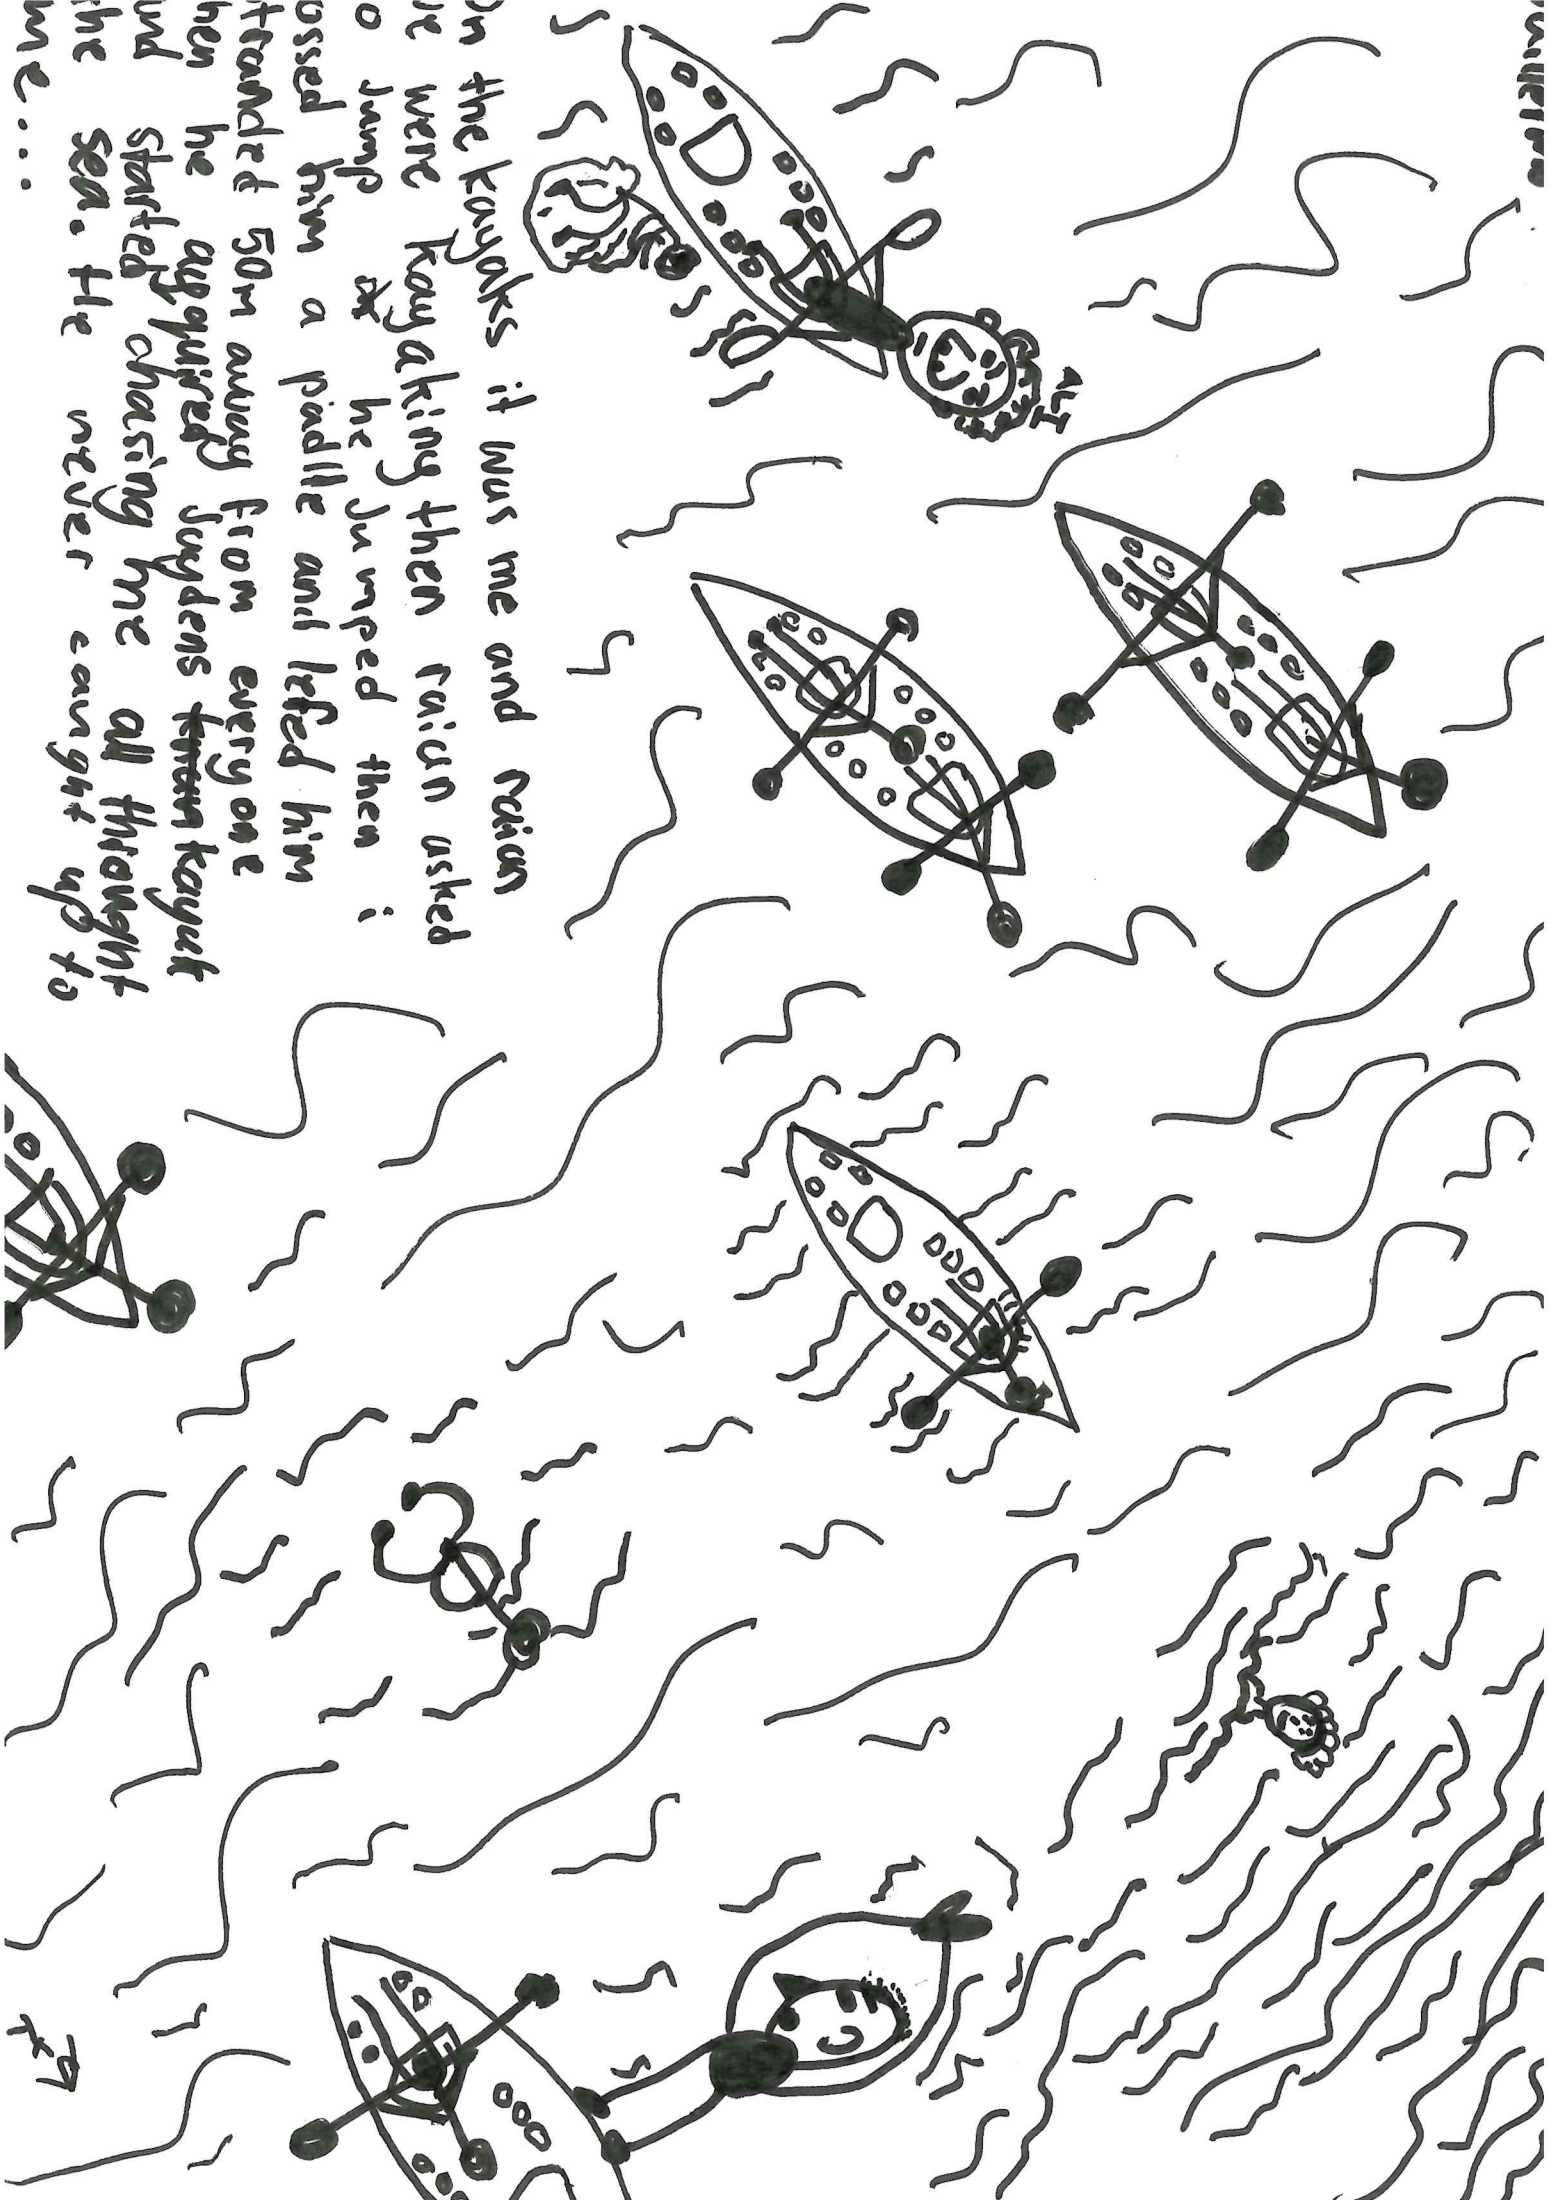 On the kayaks it was me and raian
we were kayaking then raian asked
to jump he jumped then i
tossed him a paddle and lefed him
stranded 50m away from everyone
then he aqquired jaydens kayak
and started chasing me all throught
the sea. He never caught up to
me...
ALI